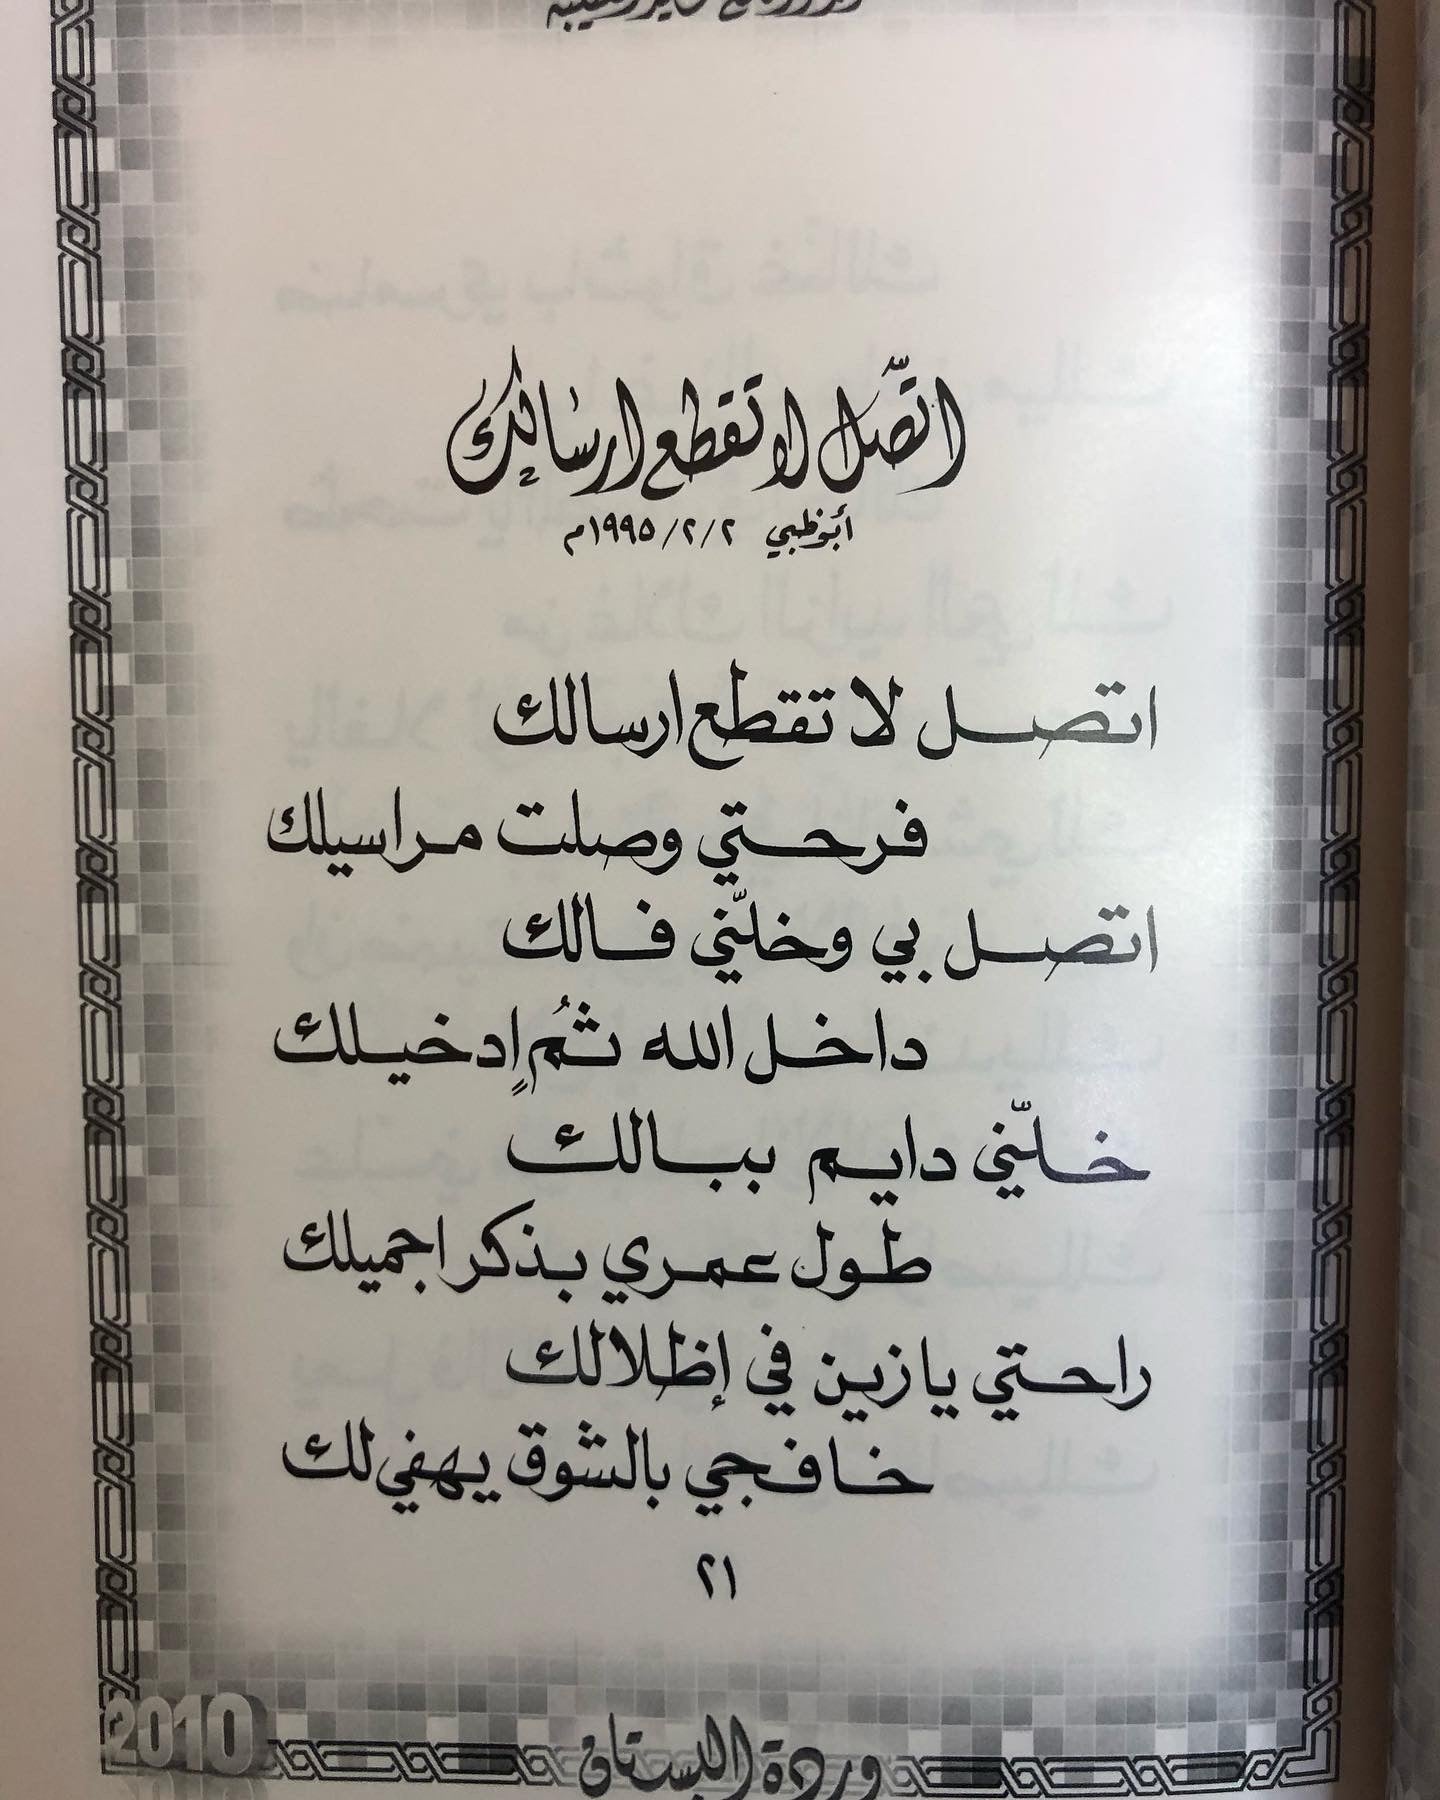 اتّصل لا تقطع ارسالك
أبوظبي ٢/٢/١٩٩٥م
اتصل لا تقطع ارسالك
فرحتي وصلت مراسيلك
اتصل بي وخلّني فالك
داخل الله ثمُ إدخيلك
خلّني دايم ببالك
طول عمري بذكر اجميلك
راحتي يا زين في إظلالك
خافجي بالشوق يهفي لك
٢١
2010
وردة البستان